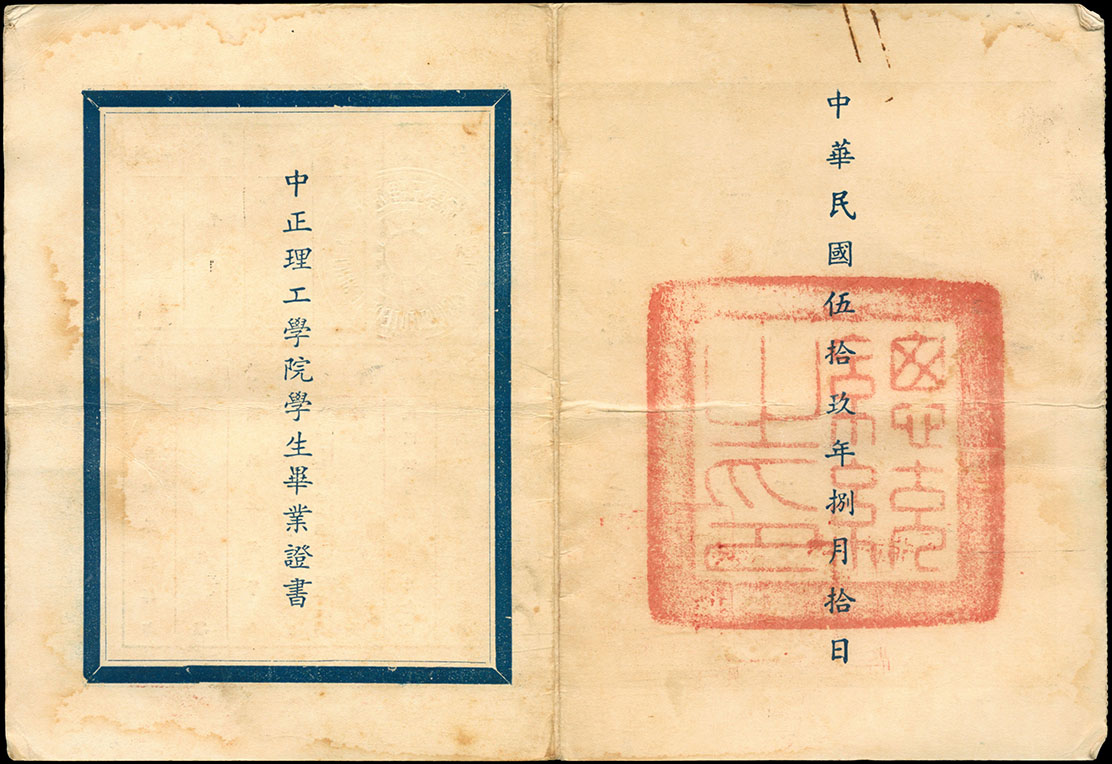 中正理工學院學生畢業證書
中華民國伍拾玖年捌月拾日